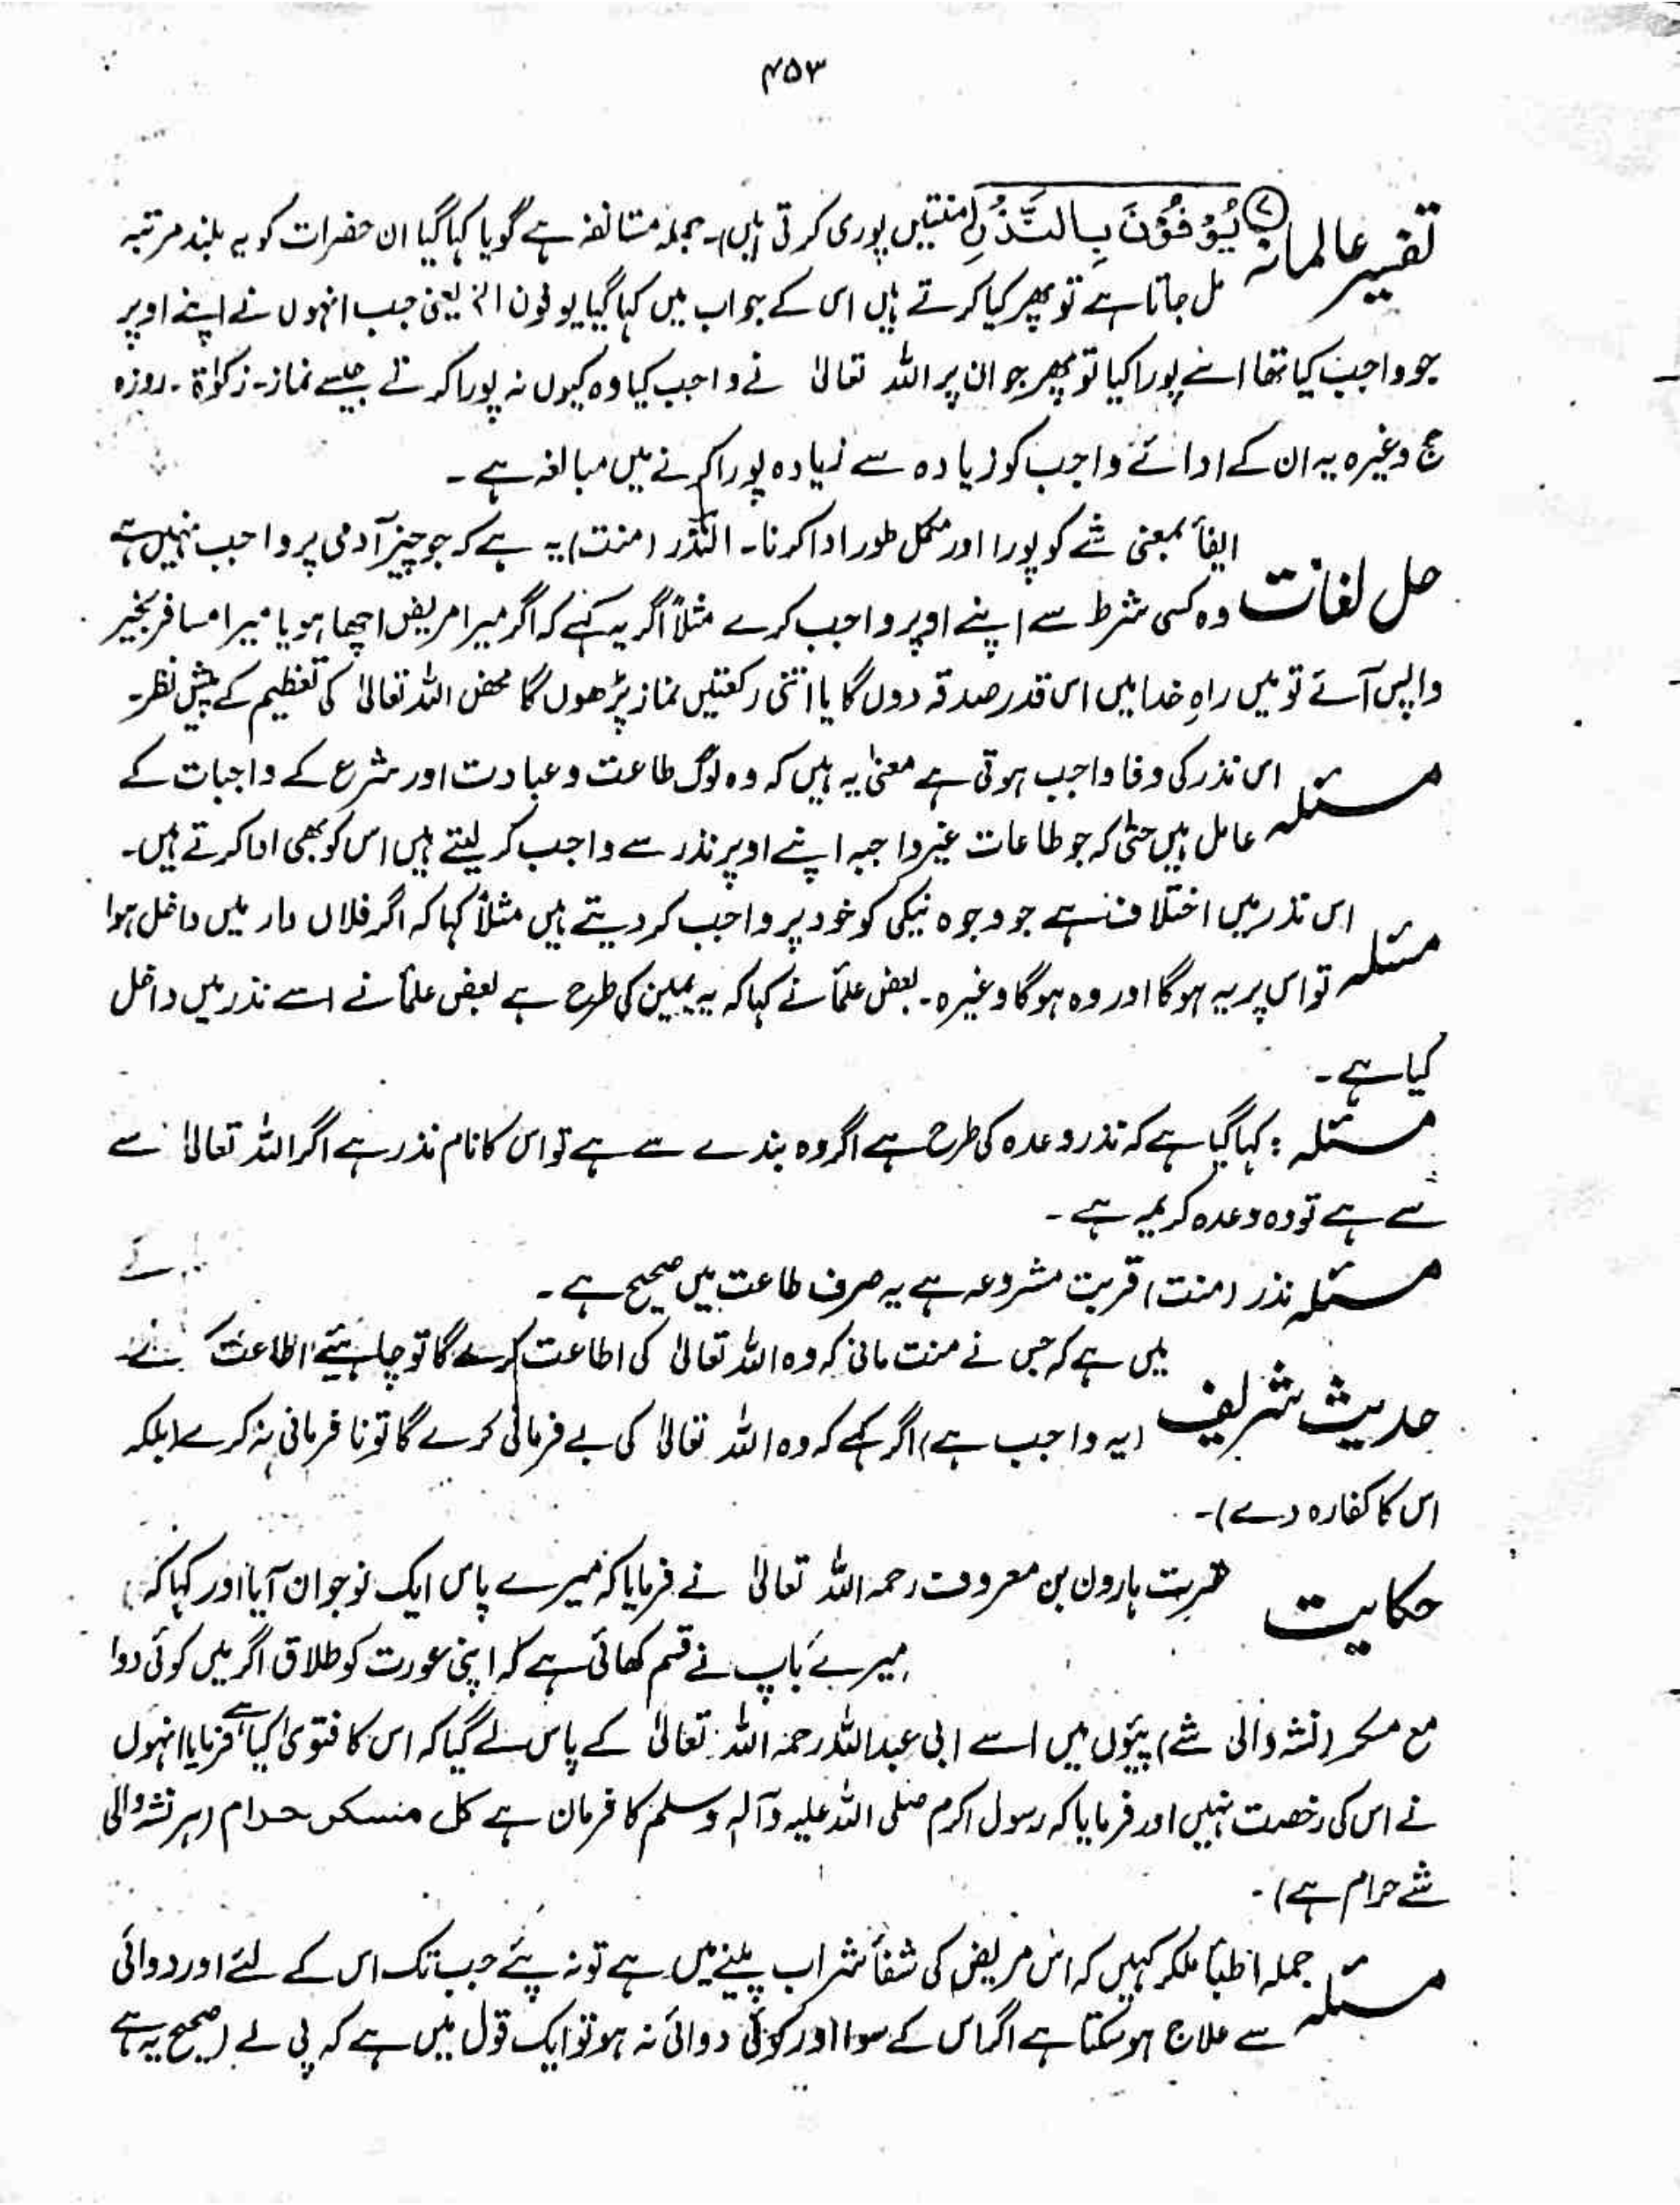 ۴۵۳
تفسیر عالمانہ ⑦ یُوْفُوْنَ بِالنَّذْرِ (منتیں پوری کرتی ہیں)۔ جملہ مستانفہ ہے گویا کہا گیا ان حضرات کو یہ بلند مرتبہ
مل جاتا ہے تو پھر کیا کرتے ہیں اس کے جواب میں کہا گیا یوفون الخ یعنی جب انہوں نے اپنے اوپر
جو واجب کیا تھا اسے پورا کیا تو پھر جو ان پر اللہ تعالیٰ نے واجب کیا وہ کیوں نہ پورا کرتے جیسے نماز۔ زکوٰۃ۔ روزہ
حج وغیرہ یہ ان کے ادائے واجب کو زیادہ سے زیادہ پورا کرنے میں مبالغہ ہے۔
حل لغات ایفأ بمعنی شے کو پورا اور مکمل طور ادا کرنا۔ النذر (منت) یہ ہے کہ جو چیز آدمی پر واجب نہیں ہے
وہ کسی شرط سے اپنے اوپر واجب کرے مثلاً اگر یہ کہے کہ اگر میرا مریض اچھا ہو یا میرا مسافر بخیر
واپس آئے تو میں راہِ خدا میں اس قدر صدقہ دوں گا یا اتنی رکعتیں نماز پڑھوں گا محض اللہ تعالیٰ کی تعظیم کے پیش نظر۔
مسئلہ اس نذر کی وفا واجب ہوتی ہے معنیٰ یہ ہیں کہ وہ لوگ طاعت و عبادت اور شرع کے واجبات کے
عامل ہیں حتیٰ کہ جو طاعات غیر واجبہ اپنے اوپر نذر سے واجب کر لیتے ہیں اس کو بھی ادا کرتے ہیں۔
مسئلہ اس نذر میں اختلاف ہے جو وجوہ نیکی کو خود پر واجب کر دیتے ہیں مثلاً کہا کہ اگر فلاں دار میں داخل ہوا
تو اس پر یہ ہوگا اور وہ ہوگا وغیرہ۔ بعض علمأ نے کہا کہ یہ یمین کی طرح ہے بعض علمأ نے اسے نذر میں داخل
کیا ہے۔
مسئلہ : کہا گیا ہے کہ نذر وعدہ کی طرح ہے اگر وہ بندے سے ہے تو اس کا نام نذر ہے اگر اللہ تعالیٰ سے
سے ہے تو وہ وعدہ کریمہ ہے۔
مسئلہ نذر (منت) قربت مشروعہ ہے یہ صرف طاعت میں صحیح ہے۔
حدیث شریف میں ہے کہ جس نے منت مانی کہ وہ اللہ تعالیٰ کی اطاعت کرے گا تو چاہیئے اطاعت
(یہ واجب ہے) اگر کہے کہ وہ اللہ تعالیٰ کی بے فرمانی کرے گا تو نافرمانی نہ کرے (بلکہ
اس کا کفارہ دے)۔
حکایت حضرت ہارون بن معروف رحمہ اللہ تعالیٰ نے فرمایا کہ میرے پاس ایک نوجوان آیا اور کہا کہ
میرے باپ نے قسم کھائی ہے کہ اپنی عورت کو طلاق اگر میں کوئی دوا
مع مسکر (نشہ والی شے) پیئوں میں اسے ابی عبداللہ رحمہ اللہ تعالیٰ کے پاس لے گیا کہ اس کا فتویٰ کیا ہے فرمایا انہوں
نے اس کی رخصت نہیں اور فرمایا کہ رسول اکرم صلی اللہ علیہ وآلہ وسلم کا فرمان ہے کل مسکر حرام (ہر نشہ والی
شے حرام ہے)۔
مسئلہ جملہ اطبأ ملکر کہیں کہ اس مریض کی شفأ شراب پینے میں ہے تو نہ پئے جب تک اس کے لئے اور دوائی
سے علاج ہو سکتا ہے اگر اس کے سوا اور کوئی دوائی نہ ہو تو ایک قول میں ہے کہ پی لے (صحیح یہ ہے